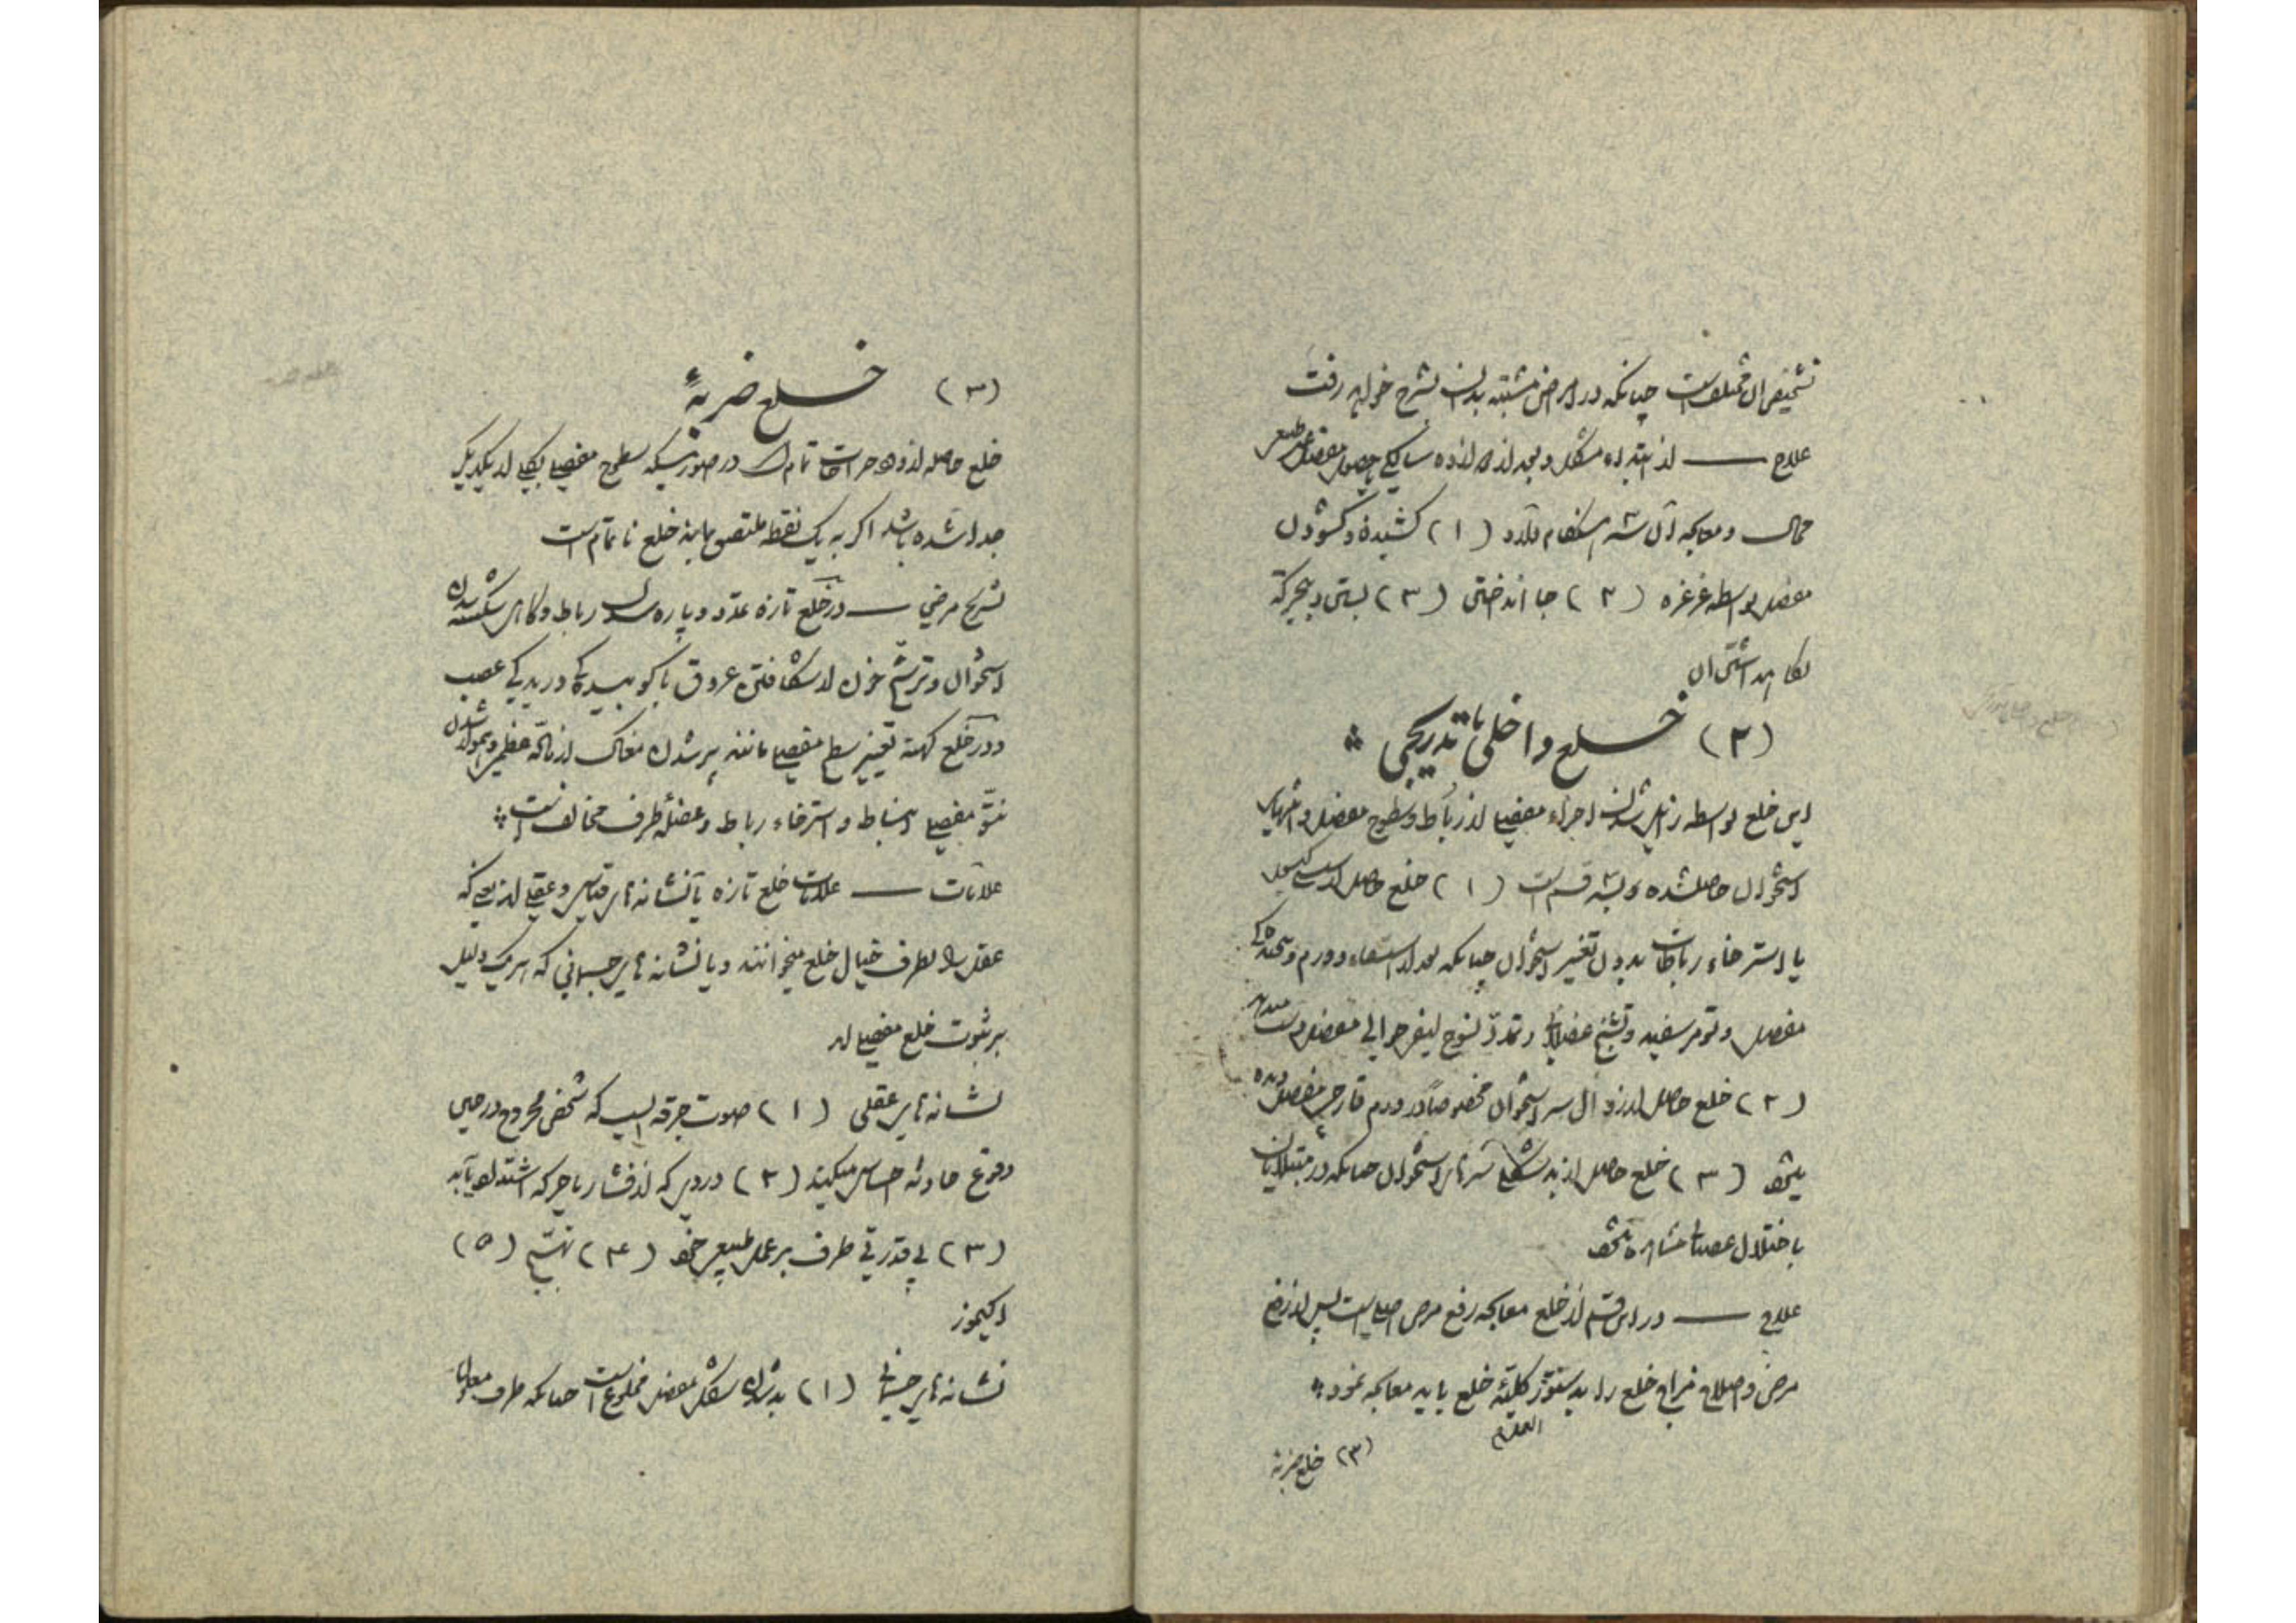 تشخیص آن مختلف است چنانکه در امراض مشتبه بدان بشرح خواهد رفت
علاج — از ابتداء مشکل و بعد از دوازده سالگی حصول مفصل غیر طبیعی
محال و معالجه آن سه هنگام دارد (۱) کشیدن و گشودن
مفصل بواسطه غرغره (۲) جا انداختن (۳) بستن و بیحرکة
نگاهداشتن آن
(۲) خلع داخلی یا تدریجی
این خلع بواسطه زایل شدن اجزاء مفصلی از رباط و سطوح مفصل و انتهای
استخوان حاصلشده و بسه قسم است (۱) خلع حاصل از کیسول
یا استرخاء رباطات بدون تغییر استخوان چنانکه بعد از استسقاء و ورم
مفصل و تومر سفید و تشنج عضلات و تمدد نسوج لیفی حوالی مفصل
(۲) خلع حاصل از زوال سر استخوان مخصوصاً در ورم قارحی مفصل دیده
میشود (۳) خلع حاصل از بدشکلی سرهای استخوان چنانکه در مبتلایان
باختلال عصبات مشاهده میشود
علاج — در این قسم از خلع معالجه رفع مرض اصلی است پس از رفع
مرض و اصلاح مزاج خلع را بدستور کلیّه خلع باید معالجه نمود
(۳) خلع ضربة
(۳) خلع ضربةً
خلع حاصله از وهن و جراحات تام است در صورتیکه سطوح مفصلی بکلی از یکدیگر
جدا شده باشد اگر به یک نقطه ملتصق بماند خلع ناتمام است
تشریح مرضی — در خلع تازه تمدد و پاره شدن رباط و گاهی شکسته شدن
استخوان و ترشّح خون از شکافتن عروق یا کوبیدگی و دریدگی عصب
و در خلع کهنه تغییر سطح مفصلی مانند پر شدن مغاک از ماده عظمی و هموار شدن
نتو مفصلی و انبساط و استرخاء رباط و عضله طرف مخالف است
علامات — علامات خلع تازه یا نشانه‌های قیاسی و عقلی از یعنی که
عقل را بطرف خیال خلع میخوانند و یا نشانه‌های جسمانی که هر یک دلیل
بر ثبوت خلع مفصلی‌اند
نشانه‌های عقلی (۱) صوت جرقه ایست که شخص مجروح در حین
وقوع حادثه احساس میکند (۲) دردی که از فشار یا حرکه اشتداد یابد
(۳) بی قدرتی طرف بر عمل طبیعی خود (۴) تهبّج (۵)
اکیموز
نشانه‌های جسمانی (۱) بدشدن شکل مفصل مخلوع است چنانکه طرف معلول